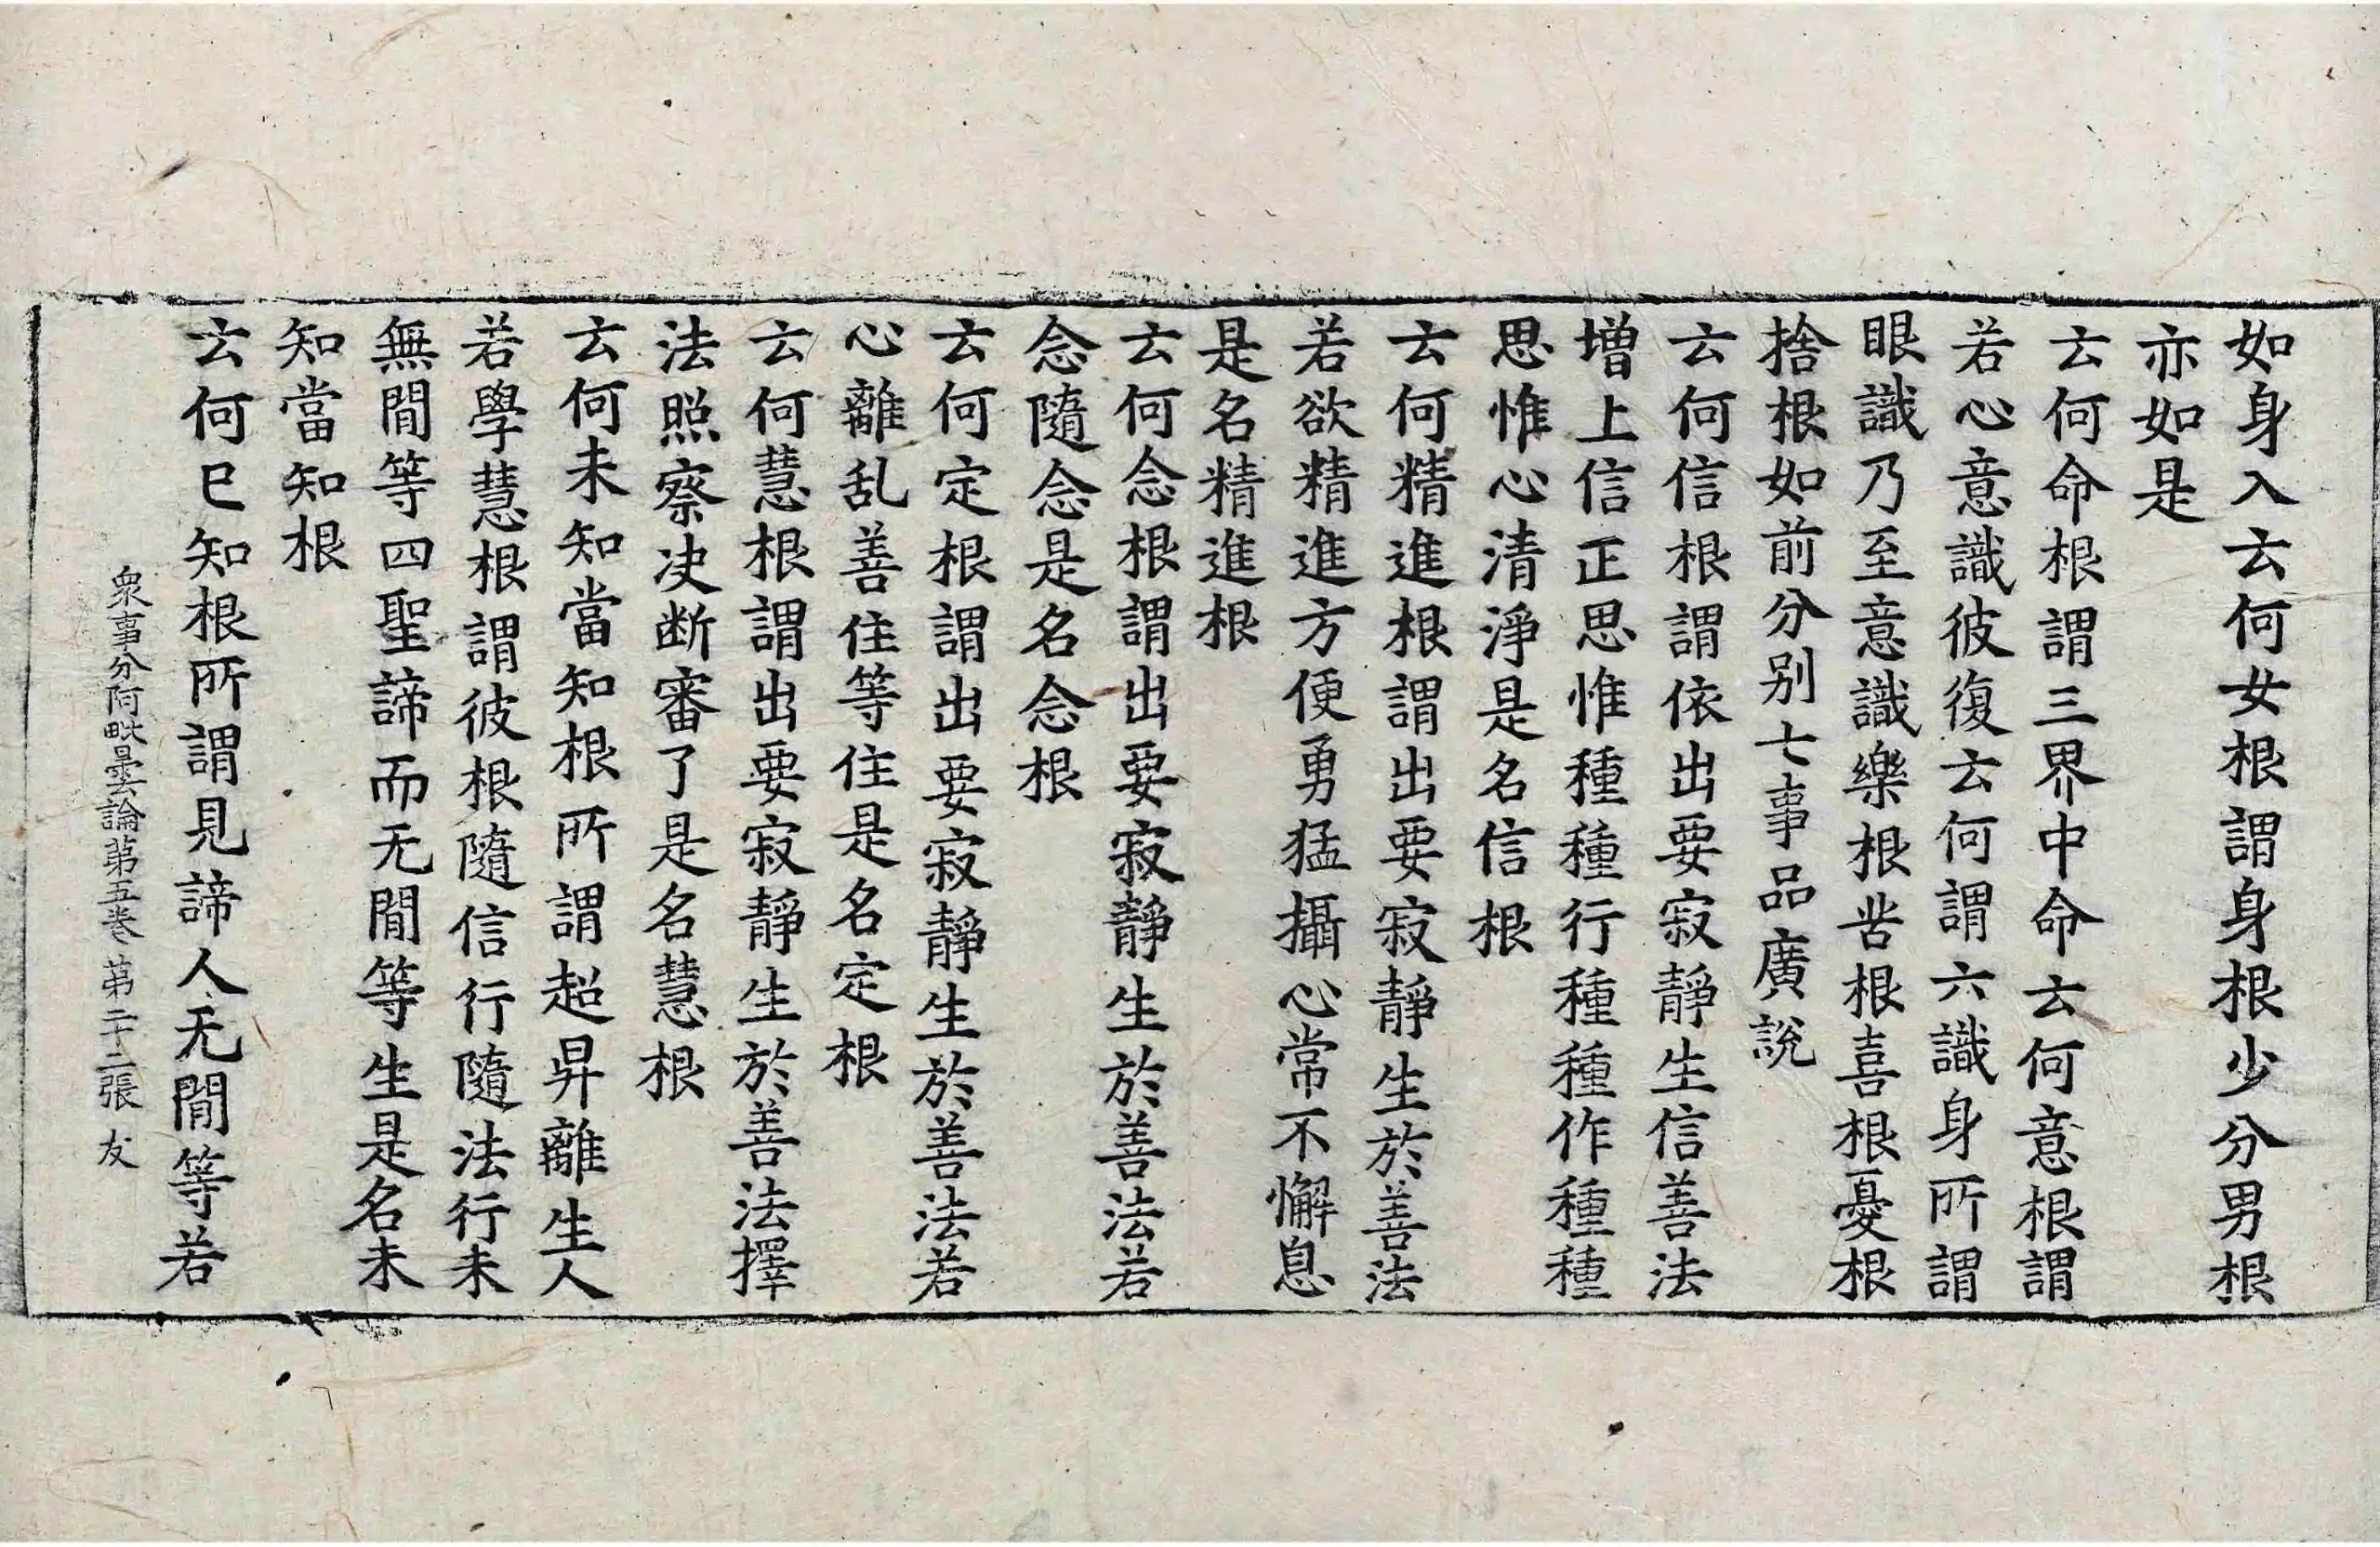 如身入云何女根謂身根少分男根
亦如是
云何命根謂三界中命云何意根謂
若心意識彼復云何謂六識身所謂
眼識乃至意識樂根苦根喜根憂根
捨根如前分別七事品廣說
云何信根謂依出要寂靜生信善法
增上信正思惟種種行種種作種種
思惟心清淨是名信根
云何精進根謂出要寂靜生於善法
若欲精進方便勇猛攝心常不懈息
是名精進根
云何念根謂出要寂靜生於善法若
念隨念是名念根
云何定根謂出要寂靜生於善法若
心離乱善住等住是名定根
云何慧根謂出要寂靜生於善法擇
法照察决断審了是名慧根
云何未知當知根所謂超昇離生人
若學慧根謂彼根隨信行隨法行未
無閒等四聖諦而无閒等生是名未
知當知根
云何已知根所謂見諦人无閒等若
衆事分阿毗曇論第五卷 第二十二張 友